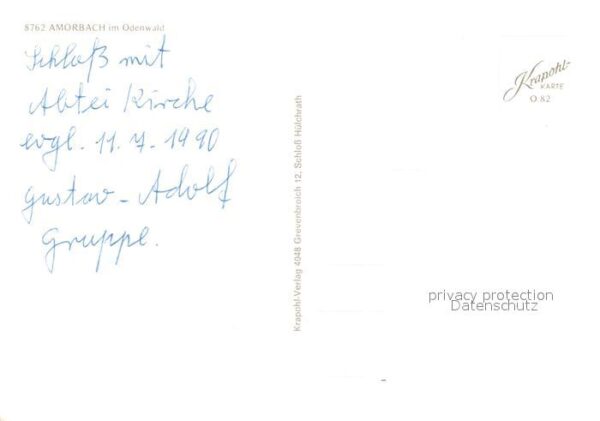 8762 AMORBACH im Odenwald
Schloß mit
Abtei Kirche
evgl. 11.7.1990
Gustav-Adolf
Gruppe.
Krapohl-Verlag 4048 Grevenbroich 12, Schloß Hülchrath
Krapohl-
KARTE
O 82
privacy protection
Datenschutz